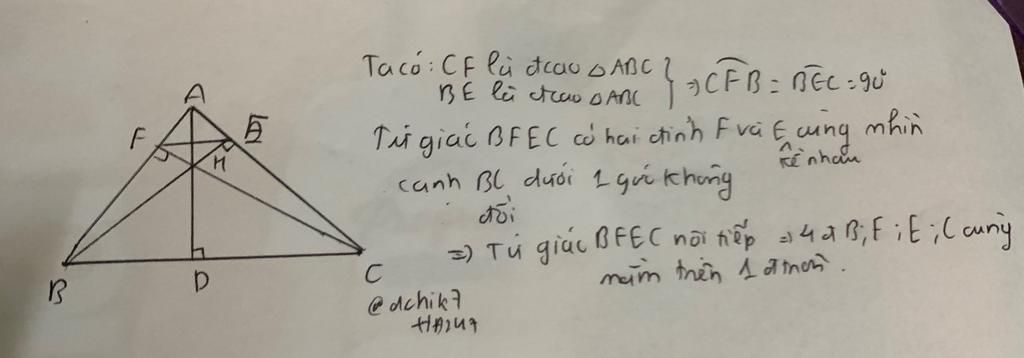 A
F
E
H
B
D
C
Ta có: CF là đcao △ABC
BE là đcao △ABC
} ⇒ CFB = BEC = 90°
Tứ giác BFEC có hai đỉnh F và E cùng nhìn
kề nhau
cạnh BC dưới 1 góc không
đổi
⇒ Tứ giác BFEC nội tiếp ⇒ 4 đ B; F; E; C cùng
nằm trên 1 đtròn.
@dchik7